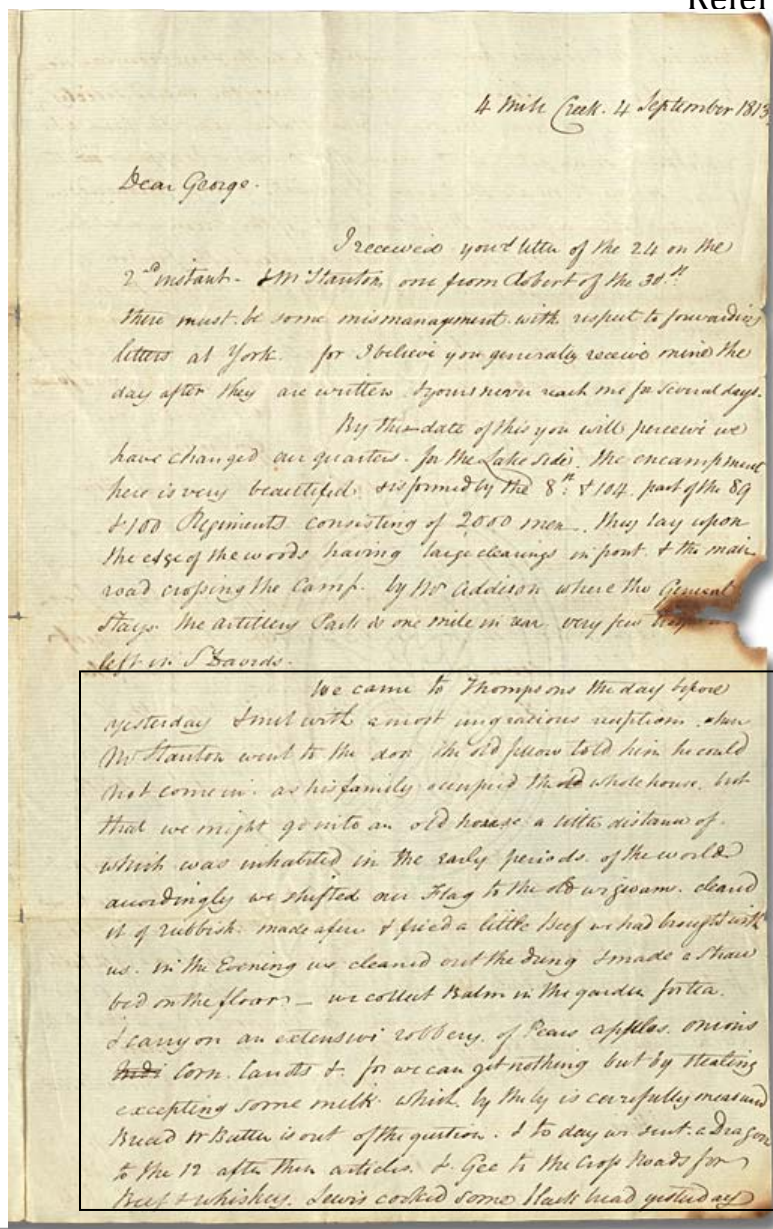 Refer
4 Mile Creek. 4 September 1813
Dear George.
I received your letter of the 24 on the
2nd instant. & Mr Stanton one from Robert of the 30th
there must be some mismanagement with respect to forwarding
letters at York. for I believe you generally receive mine the
day after they are written & yours never reach me for several days.
By the date of this you will perceive we
have changed our quarters for the Lake Side. the encampment
here is very beautiful & is formed by the 8th & 104. part of the 89
& 100 Regiments consisting of 2000 men. they lay upon
the edge of the woods having large clearings in front & the main
road crossing the Camp. by Mr Addison where the General
Stays. the Artillery Park is one mile in rear. very few
left in St Davids.
We came to Thompsons the day before
yesterday & met with a most ungracious reception. when
Mr Stanton went to the door the old fellow told him he could
not come in. as his family occupied the old whole house. but
that we might go into an old house a little distance of.
which was inhabited in the early periods of the world
accordingly we shifted our Flag to the old wigwam. cleared
it of rubbish. made a fire & fried a little Beef we had brought with
us. in the Evening we cleaned out the dung & made a Straw
bed on the floor — we collect Balm in the garden for tea.
& carry on an extensive robbery. of Pears apples. onions
Indi Corn. &. for we can get nothing but by stealing
excepting some milk. which by the by is carefully measured
Bread & Butter is out of the question. & to day we sent a Dragoon
to the 12 after these articles. & Gee to the Cross Roads for
Beef & whiskey. Lewis cooked some black head yesterday